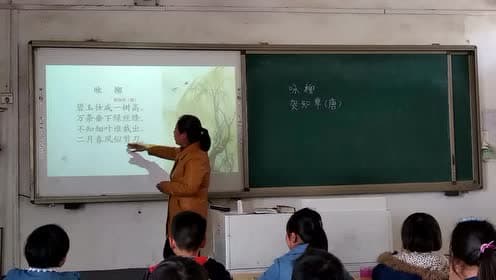 咏 柳
碧玉妆成一树高,
万条垂下绿丝绦。
不知细叶谁裁出,
二月春风似剪刀
咏 柳
贺知章(唐)